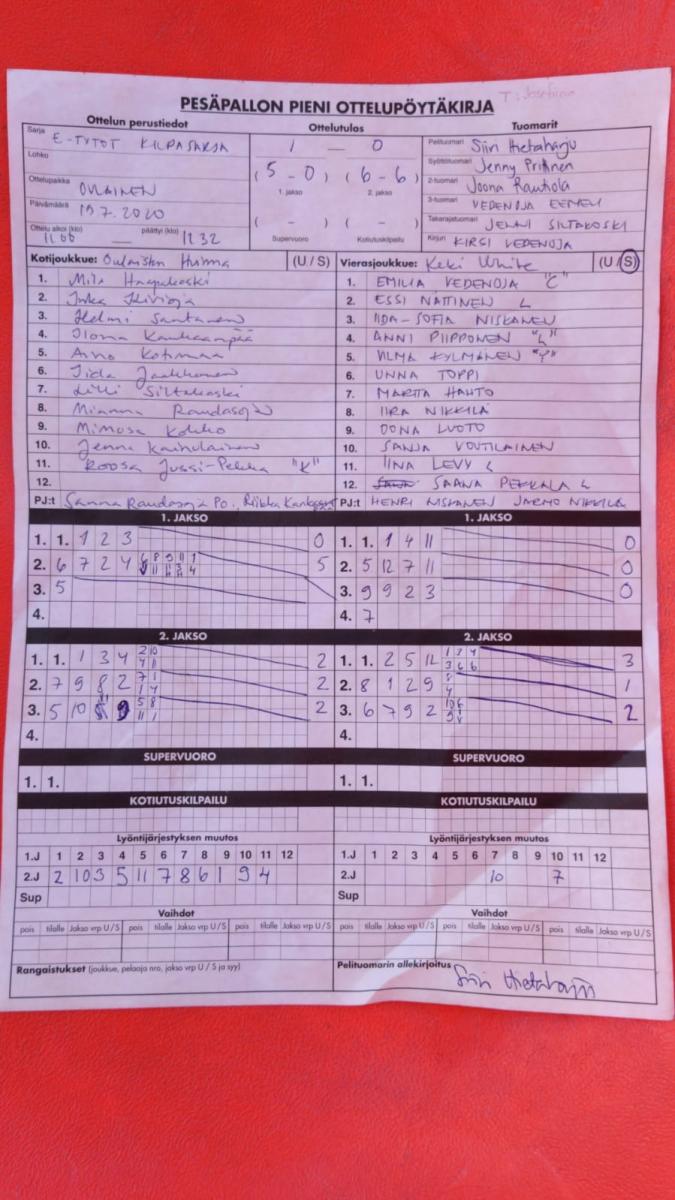 T: Josefiina
PESÄPALLON PIENI OTTELUPÖYTÄKIRJA
Ottelun perustiedot
Ottelutulos
Tuomarit
Sarja E-TYTÖT KILPASARJA
Lohko
Ottelupaikka OULAINEN
Päivämäärä 19.7.2020
Ottelu alkoi (klo) 11.00 — päättyi (klo) 11.32
1 — 0
(5 - 0) (6 - 6)
1. jakso 2. jakso
( - ) ( - )
Supervuoro Kotiutuskilpailu
Pelituomari Siiri Hietaharju
Syöttötuomari Jenny
2-tuomari Joona Rautiola
3-tuomari VEDENOJA EEMELI
Takarajatuomari JENNI SILTAKOSKI
Kirjuri KIRSI VEDENOJA
Kotijoukkue: Oulaisten Huima (U / S)
1. Mila Haapakoski
2. Inka
3. Helmi Santanen
4. Ilona Kankaanpää
5. Aino Kotimaa
6. Iida Jaakkonen
7. Lilli Siltakoski
8. Mianna Raudasoja
9. Mimosa Kokko
10. Jenna Kainulainen
11. Roosa Jussi-Pekka "K"
12.
PJ:t Sanna Raudasoja Po., Riikka Kankaanpää
Vierasjoukkue: Keki White (U / S)
1. EMILIA VEDENOJA "C"
2. ESSI NÄTTINEN L
3. IIDA-SOFIA NISKANEN
4. ANNI PIIPPONEN "L"
5. VILMA KYLMÄNEN "P"
6. UNNA TOPPI
7. MARTTA HAUTO
8. IIRA NIKKILÄ
9. OONA LUOTO
10. SANJA VOUTILAINEN
11. IINA LEVY L
12. SAANA PEKKALA L
PJ:t HENRI NISKANEN JARMO NIKKILÄ
1. JAKSO
1. 1. 1 2 3 0
2. 6 7 2 4 5
3. 5
4.
1. JAKSO
1. 1. 1 4 11 0
2. 5 12 7 11 0
3. 9 9 2 3 0
4. 7
2. JAKSO
1. 1. 1 3 4 2 10 4 11 2
2. 7 9 8 2 7 1 1 4 2
3. 5 10 9 5 8 11 1 2
4.
2. JAKSO
1. 1. 2 5 12 1 3 4 3 6 6 3
2. 8 1 2 9 1
3. 6 7 9 2 2
4.
SUPERVUORO
1. 1.
SUPERVUORO
1. 1.
KOTIUTUSKILPAILU
KOTIUTUSKILPAILU
Lyöntijärjestyksen muutos
1.J 1 2 3 4 5 6 7 8 9 10 11 12
2.J 2 10 3 5 11 7 8 6 1 9 4
Sup
Lyöntijärjestyksen muutos
1.J 1 2 3 4 5 6 7 8 9 10 11 12
2.J 10 7
Sup
Vaihdot
pois tilalle Jakso vrp U/S pois tilalle Jakso vrp U/S pois tilalle Jakso vrp U/S
Vaihdot
pois tilalle Jakso vrp U/S pois tilalle Jakso vrp U/S pois tilalle Jakso vrp U/S
Rangaistukset (joukkue, pelaaja nro, jakso vrp U / S ja syy)
Pelituomarin allekirjoitus Siiri Hietaharju